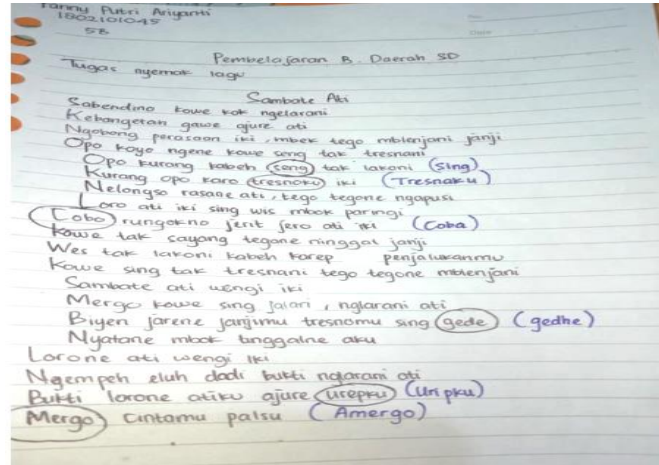 Fanny Putri Ariyanti
1802101045
5B
Pembelajaran B. Daerah SD
Tugas nyemak lagu
Sambate Ati
Sabendino kowe kok ngelarani
Kebangeten gawe ajure ati
Ngobong perasaan iki, mbek tego mblenjani janji
Opo koyo ngene kowe seng tak tresnani
Opo kurang kabeh seng tak lakoni (Sing)
Kurang opo karo tresnoku iki (Tresnaku)
Nelongso rasane ati, tego tegone ngapusi
Loro ati iki sing wis mbok paringi
Cobo rungokno jerit jero ati iki (Coba)
Kowe tak sayang tegone ninggal janji
Wes tak lakoni kabeh karep penjalukanmu
Kowe sing tak tresnani tego tegone mblenjani
Sambate ati wengi iki
Mergo kowe sing jalari, nglarani ati
Biyen jarene janjimu tresnomu sing gede (gedhe)
Nyatane mbok tinggalne aku
Lorone ati wengi iki
Ngempeh eluh dadi bukti nglarani ati
Bukti lorone atiku ajure urepku (Uripku)
Mergo cintamu palsu (Amergo)